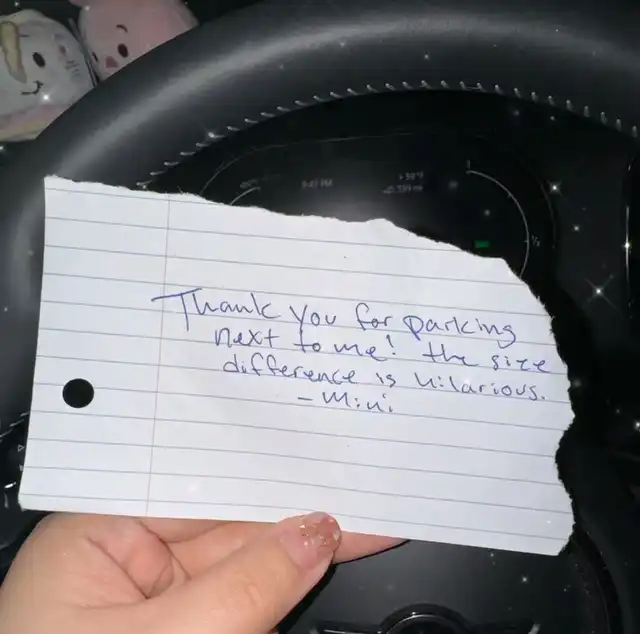 9:41 PM
Thank you for parking
next to me! the size
difference is hilarious.
- Mini